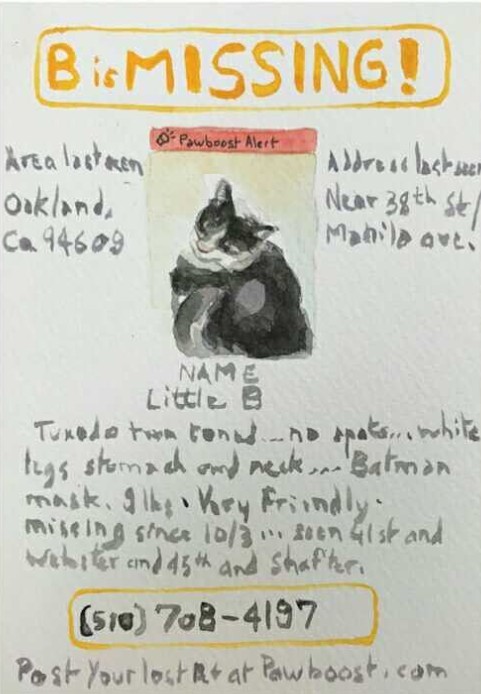 B is MISSING!
Pawboost Alert
Area last seen
Oakland,
Ca 94609
Address last seen
Near 38th St/
Manila ave.
NAME
Little B
Tuxedo two toned...no spots...white
legs stomach and neck... Batman
mask. 9lbs. Very Friendly.
missing since 10/3... seen 41st and
Webster and 45th and Shafter.
(510) 708-4197
Post Your lost Pet at Pawboost.com